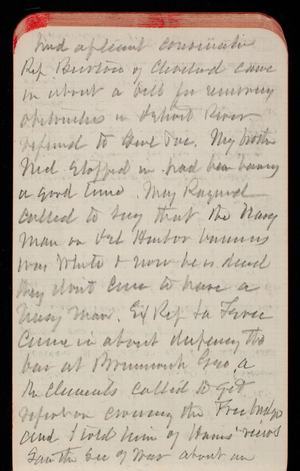 had a pleasant conversation
Rep Burton of Cleveland came
in about a bill for removing
obstructions in Detroit River
referred to Genl Poe. My brother
Ned stopped in had been having
a good time. May Raynard
called to say that the Navy
man on Det Harbor business
was White & now he is dead
they dont care to have a
Navy Man. Ex Rep La
came in about deepening the
bar at Brunswick Geo, a
Mr Clements called to get
report on crossing the Free bridge
and I told him of Hains' views
Saw the Sec of War about an